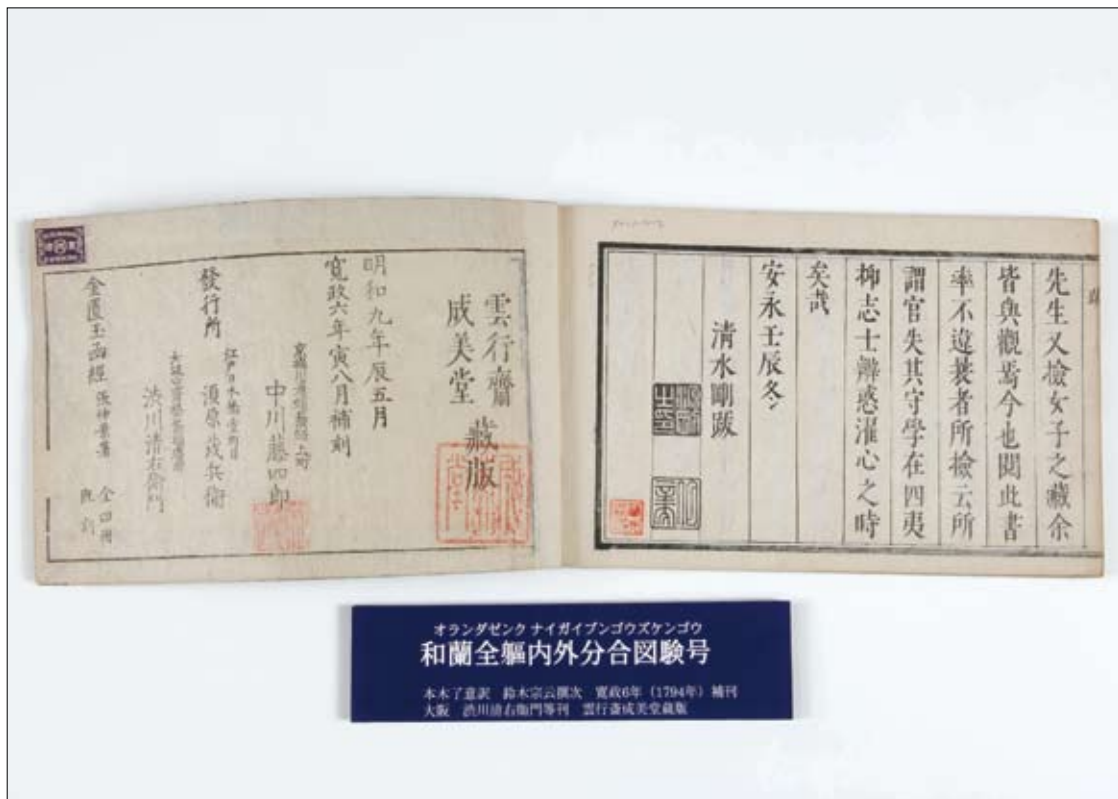 先生又撿女子之藏余
皆與觀焉今也閱此書
率不違曩者所撿云所
謂官失其守學在四夷
抑志士辨惑濯心之時
矣哉
安永壬辰冬
清水剛跋
雲行齋
成美堂
藏版
明和九年辰五月
寬政六年寅八月補刻
中川藤四郎
發行所
江戸日本橋
須原茂兵衛
渋川清右衛門
金匱玉函經 張仲景著 全四冊
オランダゼンク ナイガイブンゴウズケンゴウ
和蘭全軀内外分合図験号
本木了意訳 鈴木宗云撰次 寛政6年(1794年)補刊
大阪 渋川清右衛門等刊 雲行斎成美堂蔵版